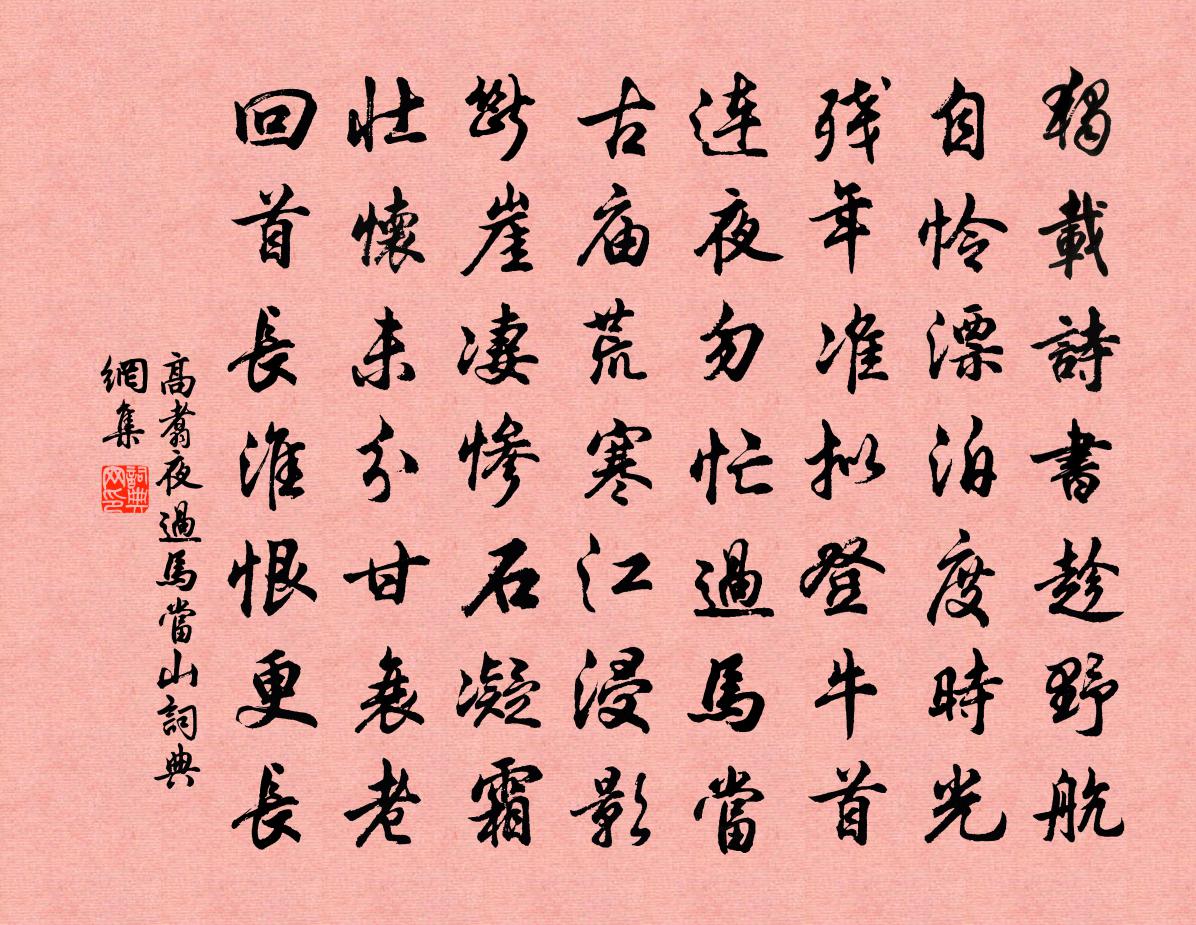 獨載詩書趁野航
自憐漂泊度時光
殘年准擬登牛首
連夜勿忙過馬當
古庙荒寒江浸影
斷崖凄慘石凝霜
壯懷未分甘衰老
回首長淮恨更長
高翥夜過馬當山詞典
網集
詞典網印